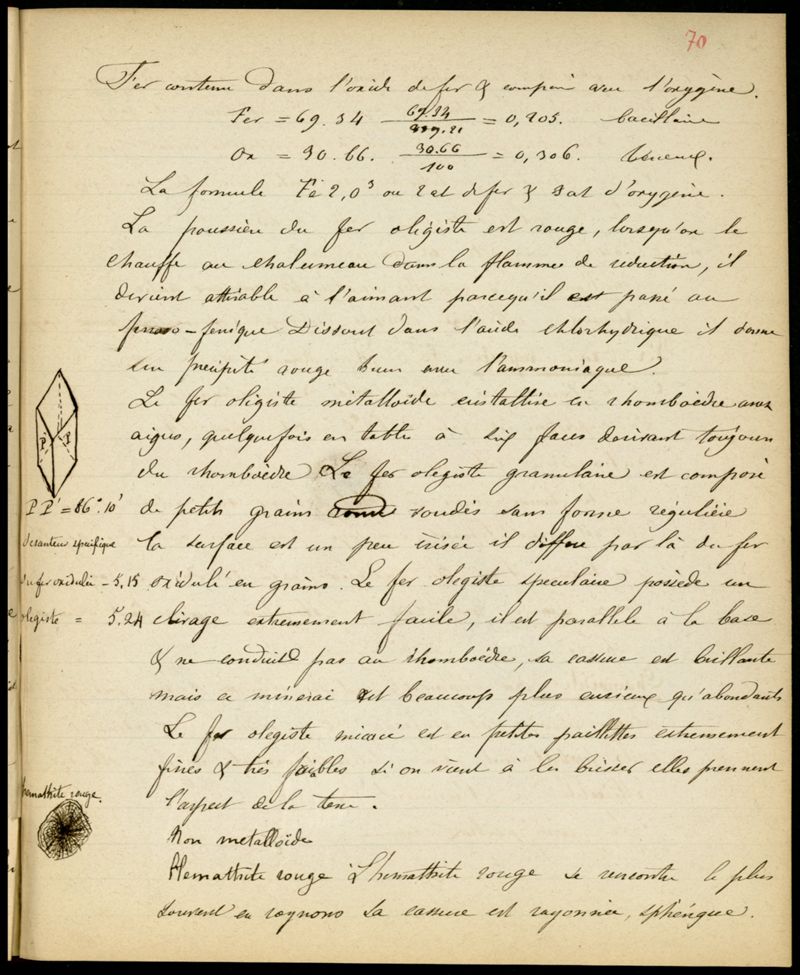 70
Fer contenu dans l'oxide de fer & comparé avec l'oxygène.
Fer = 69.34 69.34 = 0,205. bacillaire
Ox = 30.66. 30.66/100 = 0,306. terreux.
La formule Fé 2,0³ ou 2 at de fer & 3 at d'oxygène.
La poussière du fer oligiste est rouge, lorsqu'on le
chauffe au chalumeau dans la flamme de réduction, il
devient attirable à l'aimant parcequ'il est passé au
Dissout dans l'acide chlorhydrique il donne
un précipité rouge brun avec l'ammoniaque.
Le fer oligiste métalloïde cristallise en rhomboèdre assez
aigus, quelquefois en table à six faces dérivant toujours
du rhomboèdre Le fer olegiste granulaire est composé
de petits grains soudés sans forme régulière
la surface est un peu irisée il diffère par là du fer
oxidulé en grains. Le fer olegiste speculaire possède un
clivage extremement facile, il est parallele à la base
& ne conduit pas au rhomboèdre, sa cassure est brillante
mais ce minerai est beaucoup plus curieux qu'abondant
Le fer olegiste micacé est en petites paillettes extremement
fines & très faibles si on vient à les briser elles prennent
l'aspect de la terre.
Non metalloïde
Hemathite rouge L'hemathite rouge se rencontre le plus
souvent en roynons sa cassure est rayonnée, sphérique.
P P'
P P' = 86°.10'
Pesanteur spécifique
du fer oxidulé = 5.15
olegiste = 5.24
hemathite rouge.